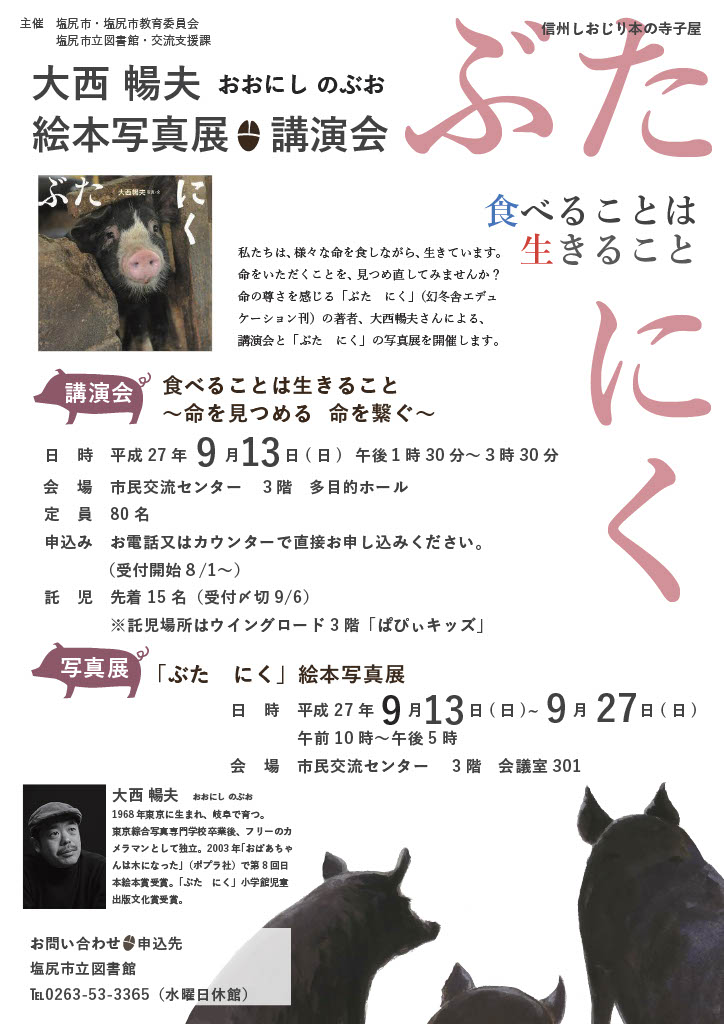 主催　塩尻市・塩尻市教育委員会
塩尻市立図書館・交流支援課
信州しおじり本の寺子屋
ぶた
にく
大西 暢夫 おおにし のぶお
絵本写真展 講演会
ぶた
にく
大西暢夫
食べることは
生きること
私たちは、様々な命を食しながら、生きています。
命をいただくことを、見つめ直してみませんか？
命の尊さを感じる「ぶた　にく」（幻冬舎エデュ
ケーション刊）の著者、大西暢夫さんによる、
講演会と「ぶた　にく」の写真展を開催します。
講演会
食べることは生きること
～命を見つめる 命を繋ぐ～
日　時　平成27年 9月13日(日) 午後1時30分～3時30分
会　場　市民交流センター　3階　多目的ホール
定　員　80名
申込み　お電話又はカウンターで直接お申し込みください。
（受付開始8/1～）
託　児　先着15名（受付〆切9/6）
※託児場所はウイングロード3階「ぱぴぃキッズ」
写真展
「ぶた　にく」絵本写真展
日　時　平成27年 9月13日(日)~ 9月 27日(日)
午前10時～午後5時
会　場　市民交流センター　3階　会議室301
大西 暢夫　おおにし のぶお
1968年東京に生まれ、岐阜で育つ。
東京綜合写真専門学校卒業後、フリーのカ
メラマンとして独立。2003年「おばあちゃ
んは木になった」（ポプラ社）で第8回日
本絵本賞受賞。「ぶた　にく」小学館児童
出版文化賞受賞。
お問い合わせ 申込先
塩尻市立図書館
℡0263-53-3365（水曜日休館）